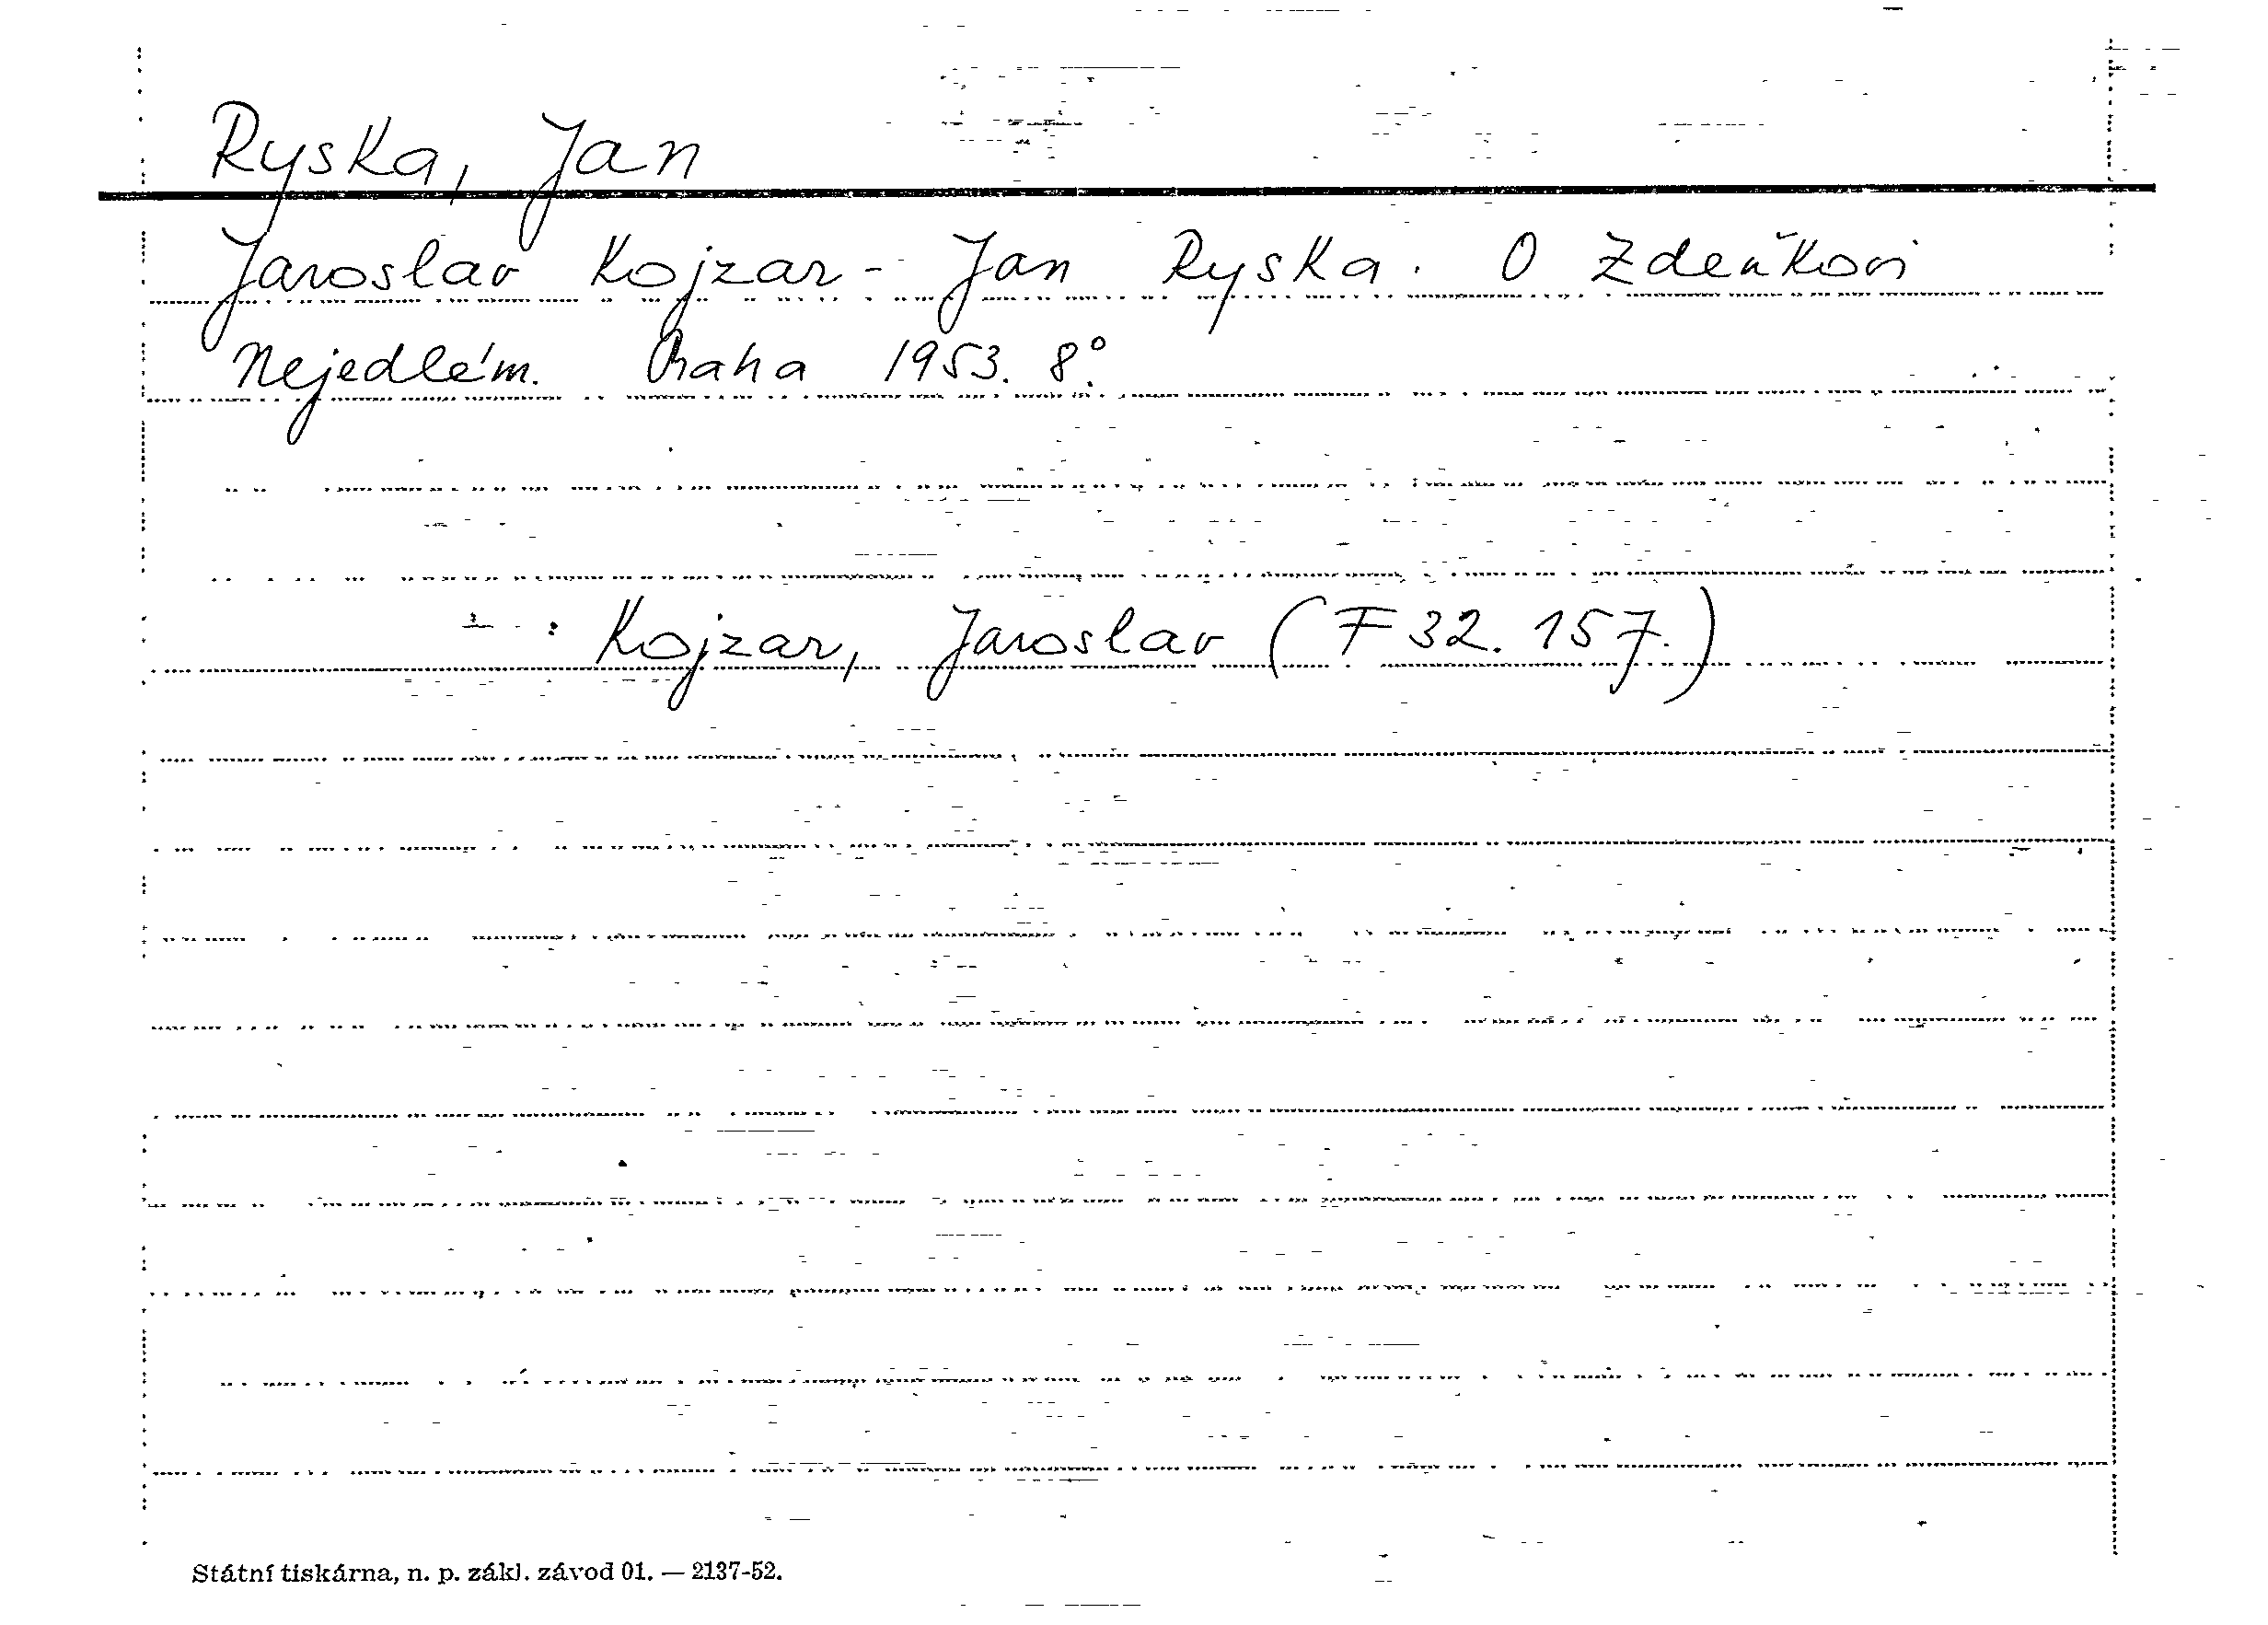 Ryska, Jan
Jaroslav Kojzar - Jan Ryska. O Zdeňkovi
Nejedlém. Praha 1953. 8°.
: Kojzar, Jaroslav (F 32. 157.)
Státní tiskárna, n. p. zákl. závod 01. — 2137-52.